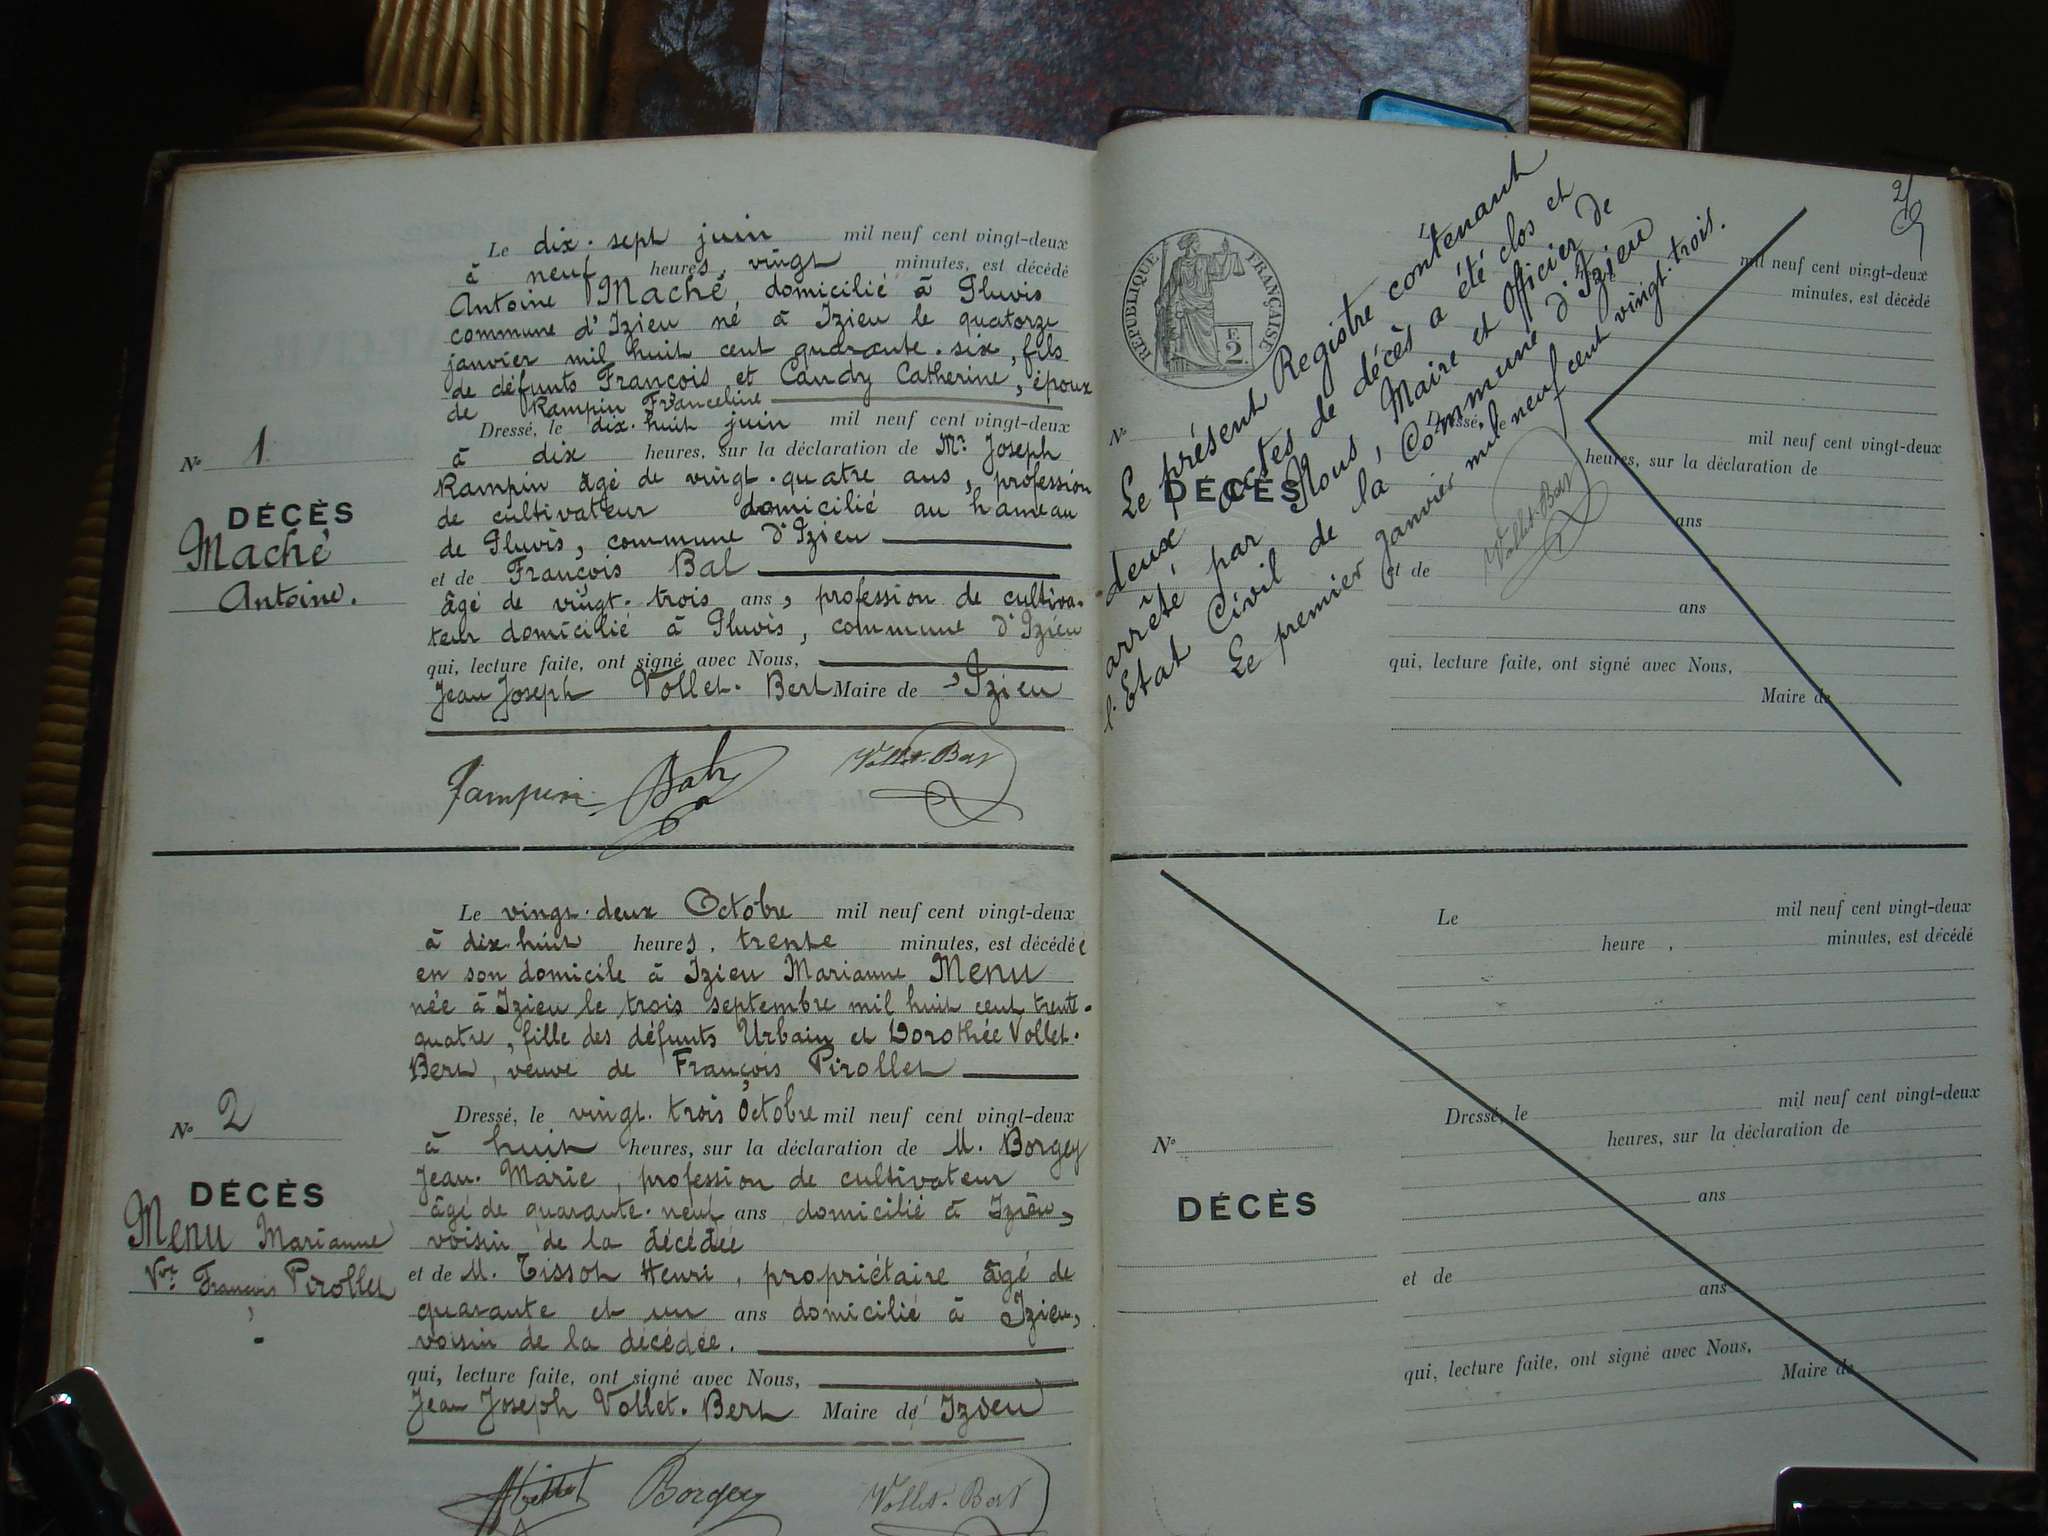 Le dix-sept juin mil neuf cent vingt-deux
à neuf heures, vingt minutes, est décédé
Antoine Maché, domicilié à Pluvis
commune d'Izieu né à Izieu le quatorze
janvier mil huit cent quarante-six, fils
de défunts François et Candy Catherine, époux
de Rampin Franceline
Dressé, le dix-huit juin mil neuf cent vingt-deux
à dix heures, sur la déclaration de Mr Joseph
Rampin âgé de vingt-quatre ans, profession
de cultivateur domicilié au hameau
de Pluvis, commune d'Izieu
et de François Bal
âgé de vingt-trois ans, profession de cultiva-
teur domicilié à Pluvis, commune d'Izieu
qui, lecture faite, ont signé avec Nous,
Jean Joseph Vollet-Bert Maire de d'Izieu
Rampin Bal Vollet-Bert
No 1
DÉCÈS
Maché
Antoine.
Le vingt-deux Octobre mil neuf cent vingt-deux
à dix-huit heures, trente minutes, est décédée
en son domicile à Izieu Marianne Menu
née à Izieu le trois septembre mil huit cent trente-
quatre, fille des défunts Urbain et Dorothée Vollet-
Bert, veuve de François Pirollet
Dressé, le vingt-trois Octobre mil neuf cent vingt-deux
à huit heures, sur la déclaration de M. Borgey
Jean-Marie, profession de cultivateur
âgé de quarante-neuf ans domicilié à Izieu,
voisin de la décédée
et de M. Tissot Henri, propriétaire âgé de
quarante et un ans domicilié à Izieu,
voisin de la décédée.
qui, lecture faite, ont signé avec Nous,
Jean Joseph Vollet-Bert Maire de Izieu
Borgey Vollet-Bert
No 2
DÉCÈS
Menu Marianne
Vve François Pirollet
2
RÉPUBLIQUE FRANÇAISE
2F
Le présent Registre contenant
deux actes de décès a été clos et
arrêté par Nous, Maire et Officier de
l'Etat Civil de la Commune d'Izieu
Le premier Janvier mil neuf cent vingt-trois.
Vollet-Bert
mil neuf cent vingt-deux
minutes, est décédé
No
DÉCÈS
Dressé, le
mil neuf cent vingt-deux
heures, sur la déclaration de
ans
et de
ans
qui, lecture faite, ont signé avec Nous,
Maire de
Le mil neuf cent vingt-deux
heure , minutes, est décédé
Dressé, le mil neuf cent vingt-deux
heures, sur la déclaration de
No
ans
DÉCÈS
et de
ans
qui, lecture faite, ont signé avec Nous,
Maire de